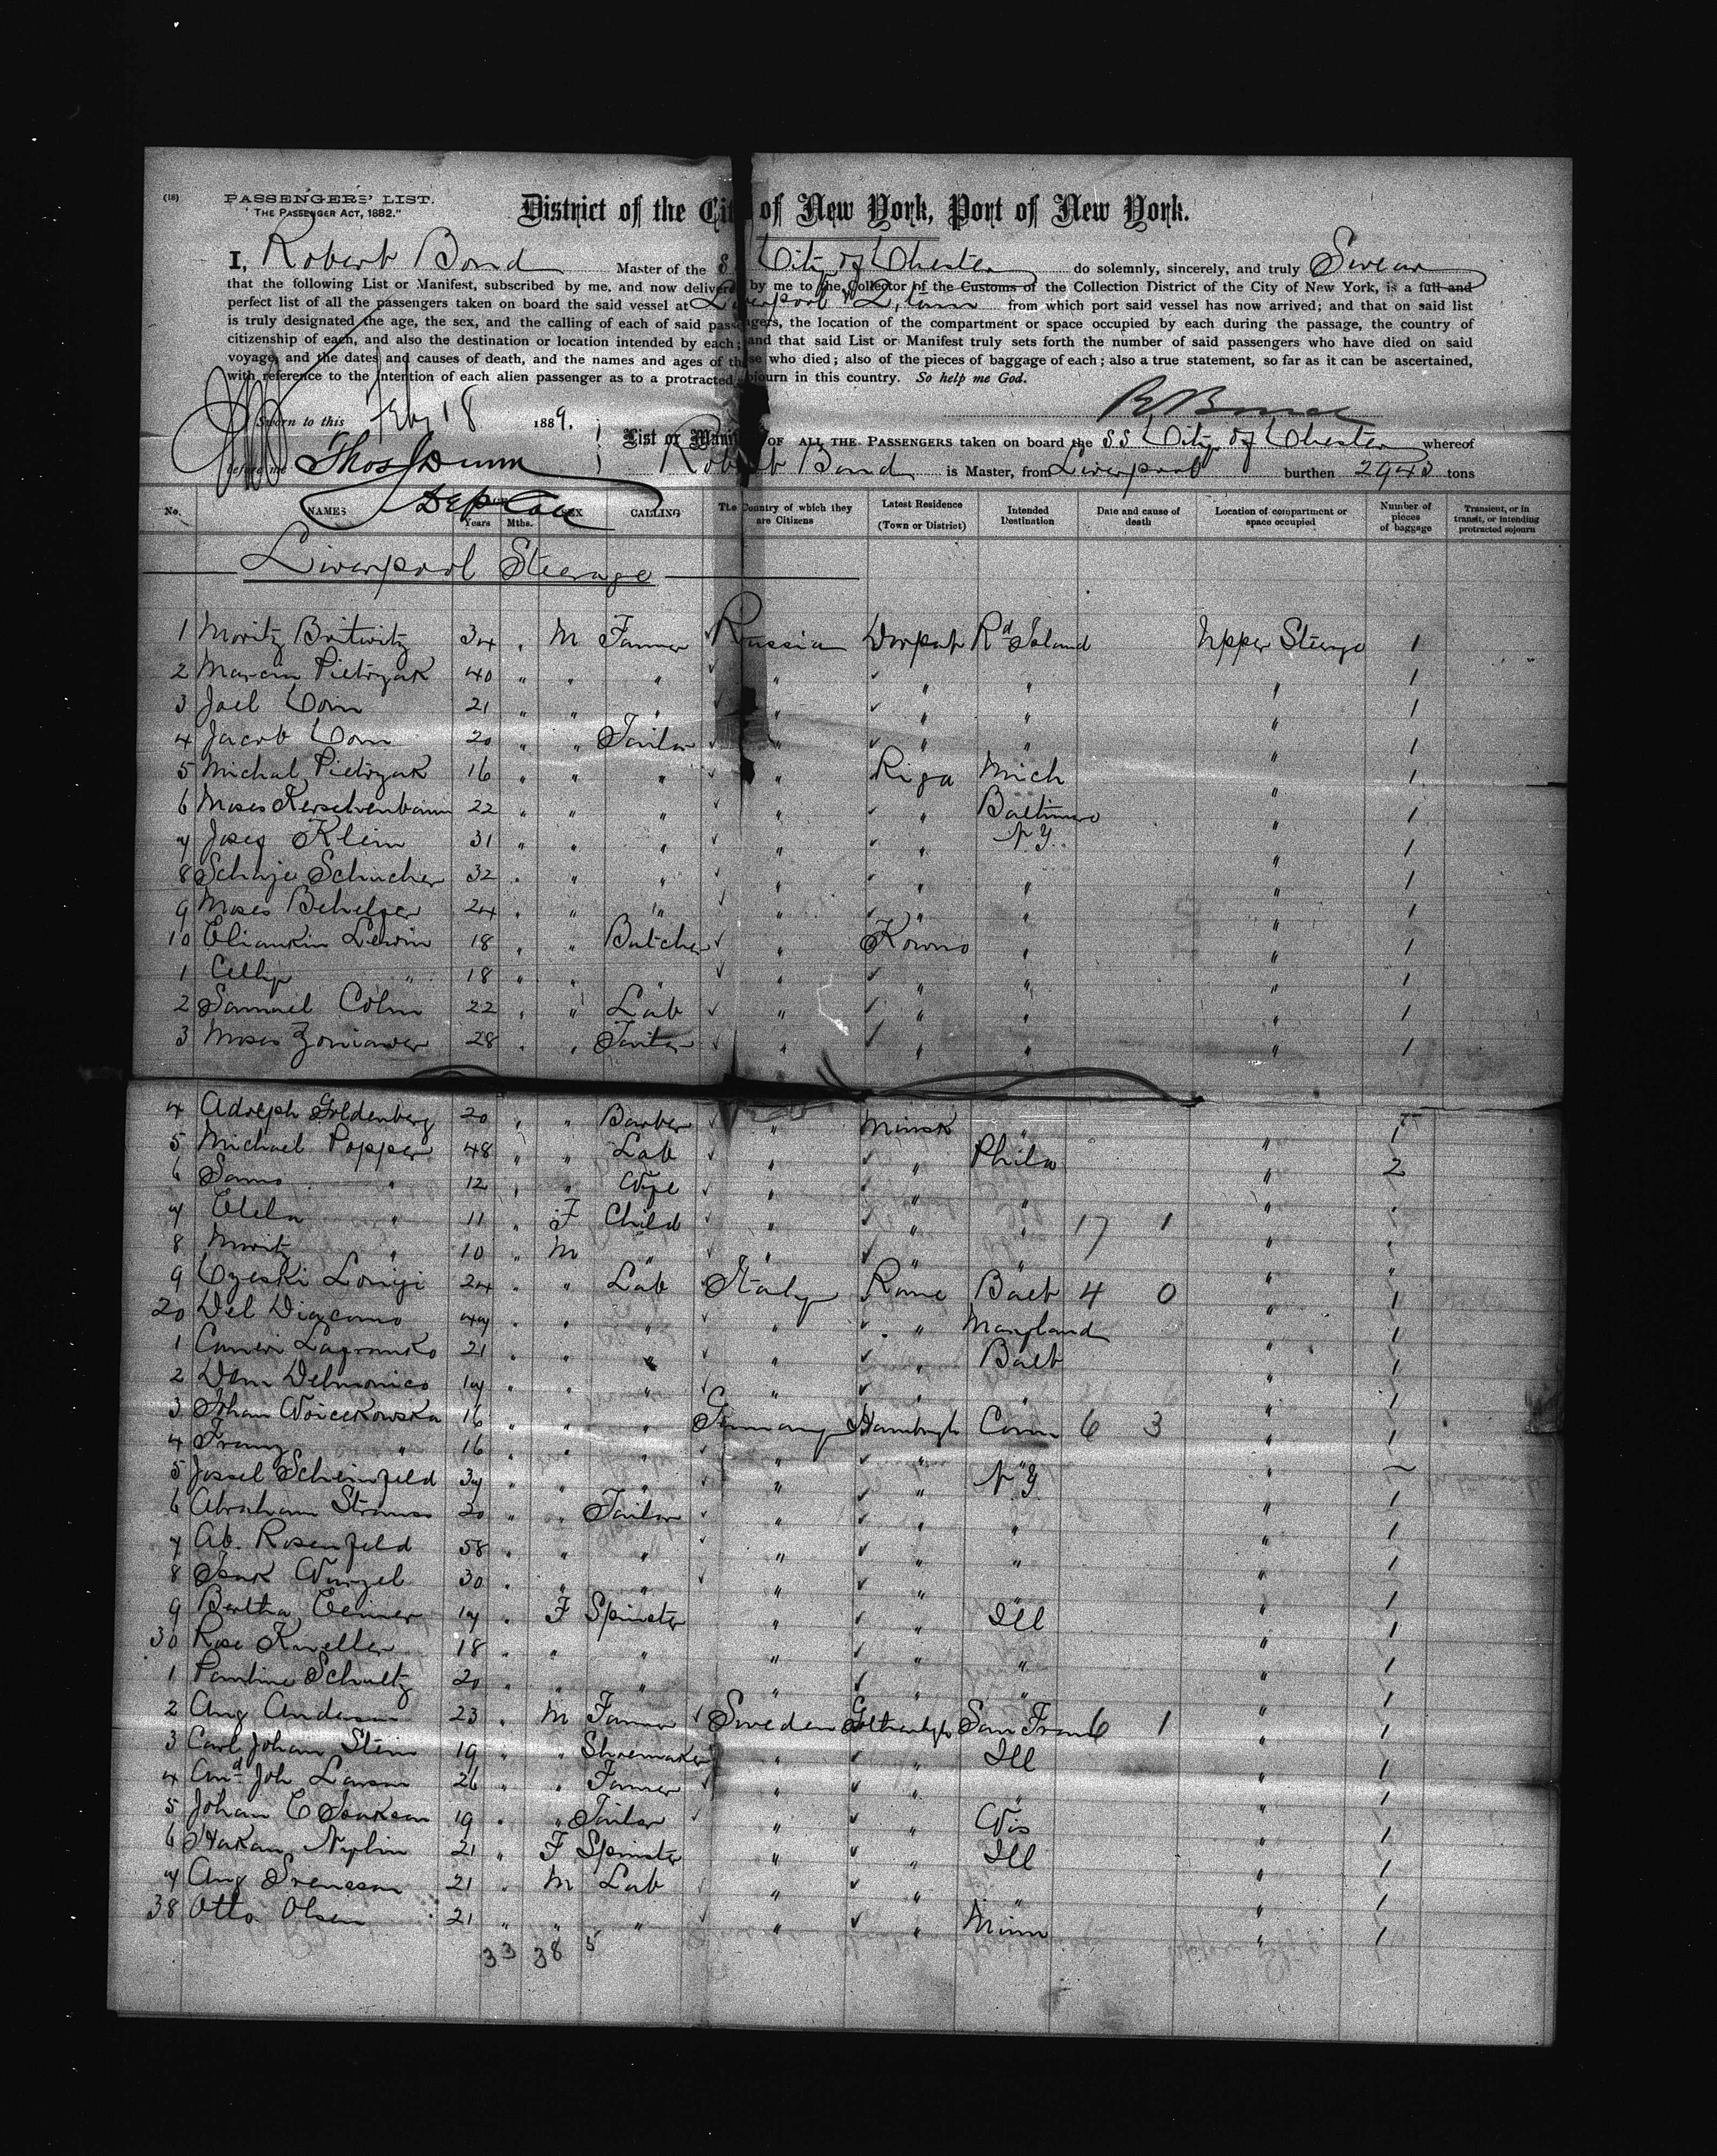 (18)
PASSENGERS' LIST.
"THE PASSENGER ACT, 1882."
District of the City of New York, Port of New York.
I, Robert Bond Master of the SS City of Chester do solemnly, sincerely, and truly Swear
that the following List or Manifest, subscribed by me, and now delivered by me to the Collector of the Customs of the Collection District of the City of New York, is a full and
perfect list of all the passengers taken on board the said vessel at Liverpool from which port said vessel has now arrived; and that on said list
is truly designated the age, the sex, and the calling of each of said passengers, the location of the compartment or space occupied by each during the passage, the country of
citizenship of each, and also the destination or location intended by each; and that said List or Manifest truly sets forth the number of said passengers who have died on said
voyage, and the dates and causes of death, and the names and ages of those who died; also of the pieces of baggage of each; also a true statement, so far as it can be ascertained,
with reference to the intention of each alien passenger as to a protracted sojourn in this country. So help me God.
R Bond
Sworn to this Feby 18 1889.
before me Thos Dunn
Dep Coll
List or Manifest OF ALL THE PASSENGERS taken on board the SS City of Chester whereof
Robert Bond is Master, from Liverpool burthen 2943 tons
No. NAMES Years Mths. SEX CALLING The Country of which they are Citizens Latest Residence (Town or District) Intended Destination Date and cause of death Location of compartment or space occupied Number of pieces of baggage Transient, or in transit, or intending protracted sojourn
Liverpool Steerage
1 Moritz Britwitz 34 " M Farmer Russia Dorpat Rd Island Upper Steerge 1
2 Marcin Pietrzak 40 " " " " " " " 1
3 Joel Corn 21 " " " " " " " 1
4 Jacob Corn 20 " " Tailor " " " " 1
5 Michal Pietrzak 16 " " " " Riga Mich " 1
6 Moses Kerschenbaum 22 " " " " " Baltimore " 1
7 Josef Klein 31 " " " " " N Y. " 1
8 Schaje Schucher 32 " " " " " " " 1
9 Moses 24 " " " " " " " 1
10 Eliankin Lewin 18 " " Butcher " Kowno " " 1
1 " 18 " " " " " " " 1
2 Samuel Cohn 22 " " Lab " " " " 1
3 Moses 28 " " Tailor " " " " 1
4 Adolph Goldenberg 20 " " Barber " Minsk " " 1
5 Michael Popper 48 " " Lab " " Phila " 2
6 " 12 " " Wife " " " " "
7 " 11 " F Child " " " 17 1 " "
8 Moritz " 10 " M " " " " " "
9 Czeski Louigi 24 " " Lab Italy Rome Balt 4 0 " 1
20 Del Diacomo 47 " " " " " Maryland " 1
1 Lafranko 21 " " " " " Balt " 1
2 Dom Delmonico 17 " " " " " " " 1
3 Johan Woicekowska 16 " " " Germany Hamburgh Conn 6 3 " 1
4 Franz " 16 " " " " " " " –
5 Jossel Scheinfeld 37 " " " " " N Y " 1
6 Abraham Strauss 20 " " Tailor " " " " 1
7 Ab. Rosenfeld 58 " " " " " " " 1
8 Isak Wurzel 30 " " " " " " " 1
9 Bertha 17 " F Spinster " " Ill " 1
30 Rosi Kneller 18 " " " " " " " 1
1 Pauline Schultz 20 " " " " " " " 1
2 Aug Anderson 23 " M Farmer Sweden Gothenbgh San Fran 6 1 " 1
3 Carl Johan Stein 19 " " Shoemaker " " Ill " 1
4 And Joh Larson 26 " " Farmer " " " " 1
5 Johan C Isakson 19 " " Tailor " " Wis " 1
6 Hakan Nyplin 21 " F Spinster " " Ill " 1
7 Aug Svensson 21 " M Lab " " " " 1
38 Otto Olsen 21 " " " " " Minn " 1
33 38 5